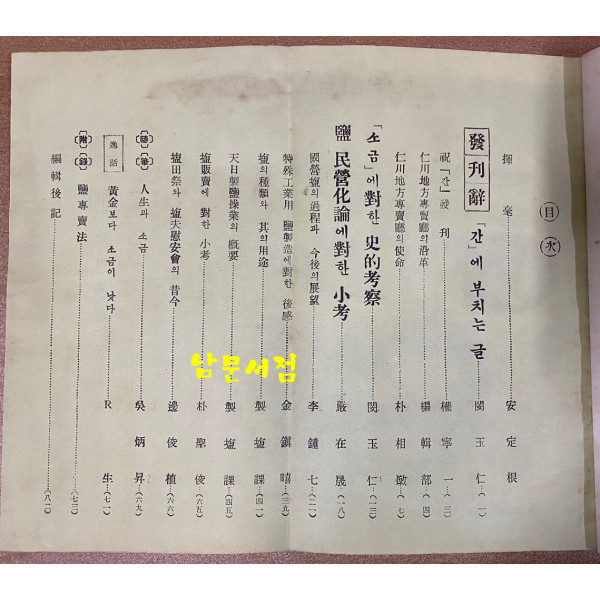 目次
揮毫 安定根
發刊辭 「간」에 부치는 글 閔玉仁(一)
祝「간」發刊 權寧一(三)
仁川地方專賣廳의沿革 編輯部(四)
仁川地方專賣廳의使命 朴相徵(七)
「소금」에對한 史的考察 閔玉仁(一三)
鹽 民營化論에對한 小考 嚴在晟(一八)
國營塩의過程과 今後의展望 李鍾七(二一)
特殊工業用 鹽製造에對한 後感 金鎭暿(三九)
塩의種類와 其의用途 製塩課(四一)
天日製鹽操業의槪要 製塩課(四五)
塩販賣에 對한 小考 朴聖俊(六五)
塩田祭와 塩夫慰安會의 昔今 邊俊植(六六)
隨筆 人生과 소금 吳炳昇(六九)
逸話 黃金보다 소금이 낫다 R生(七一)
附錄 鹽專賣法 (七三)
編輯後記 (八二)
남문서점